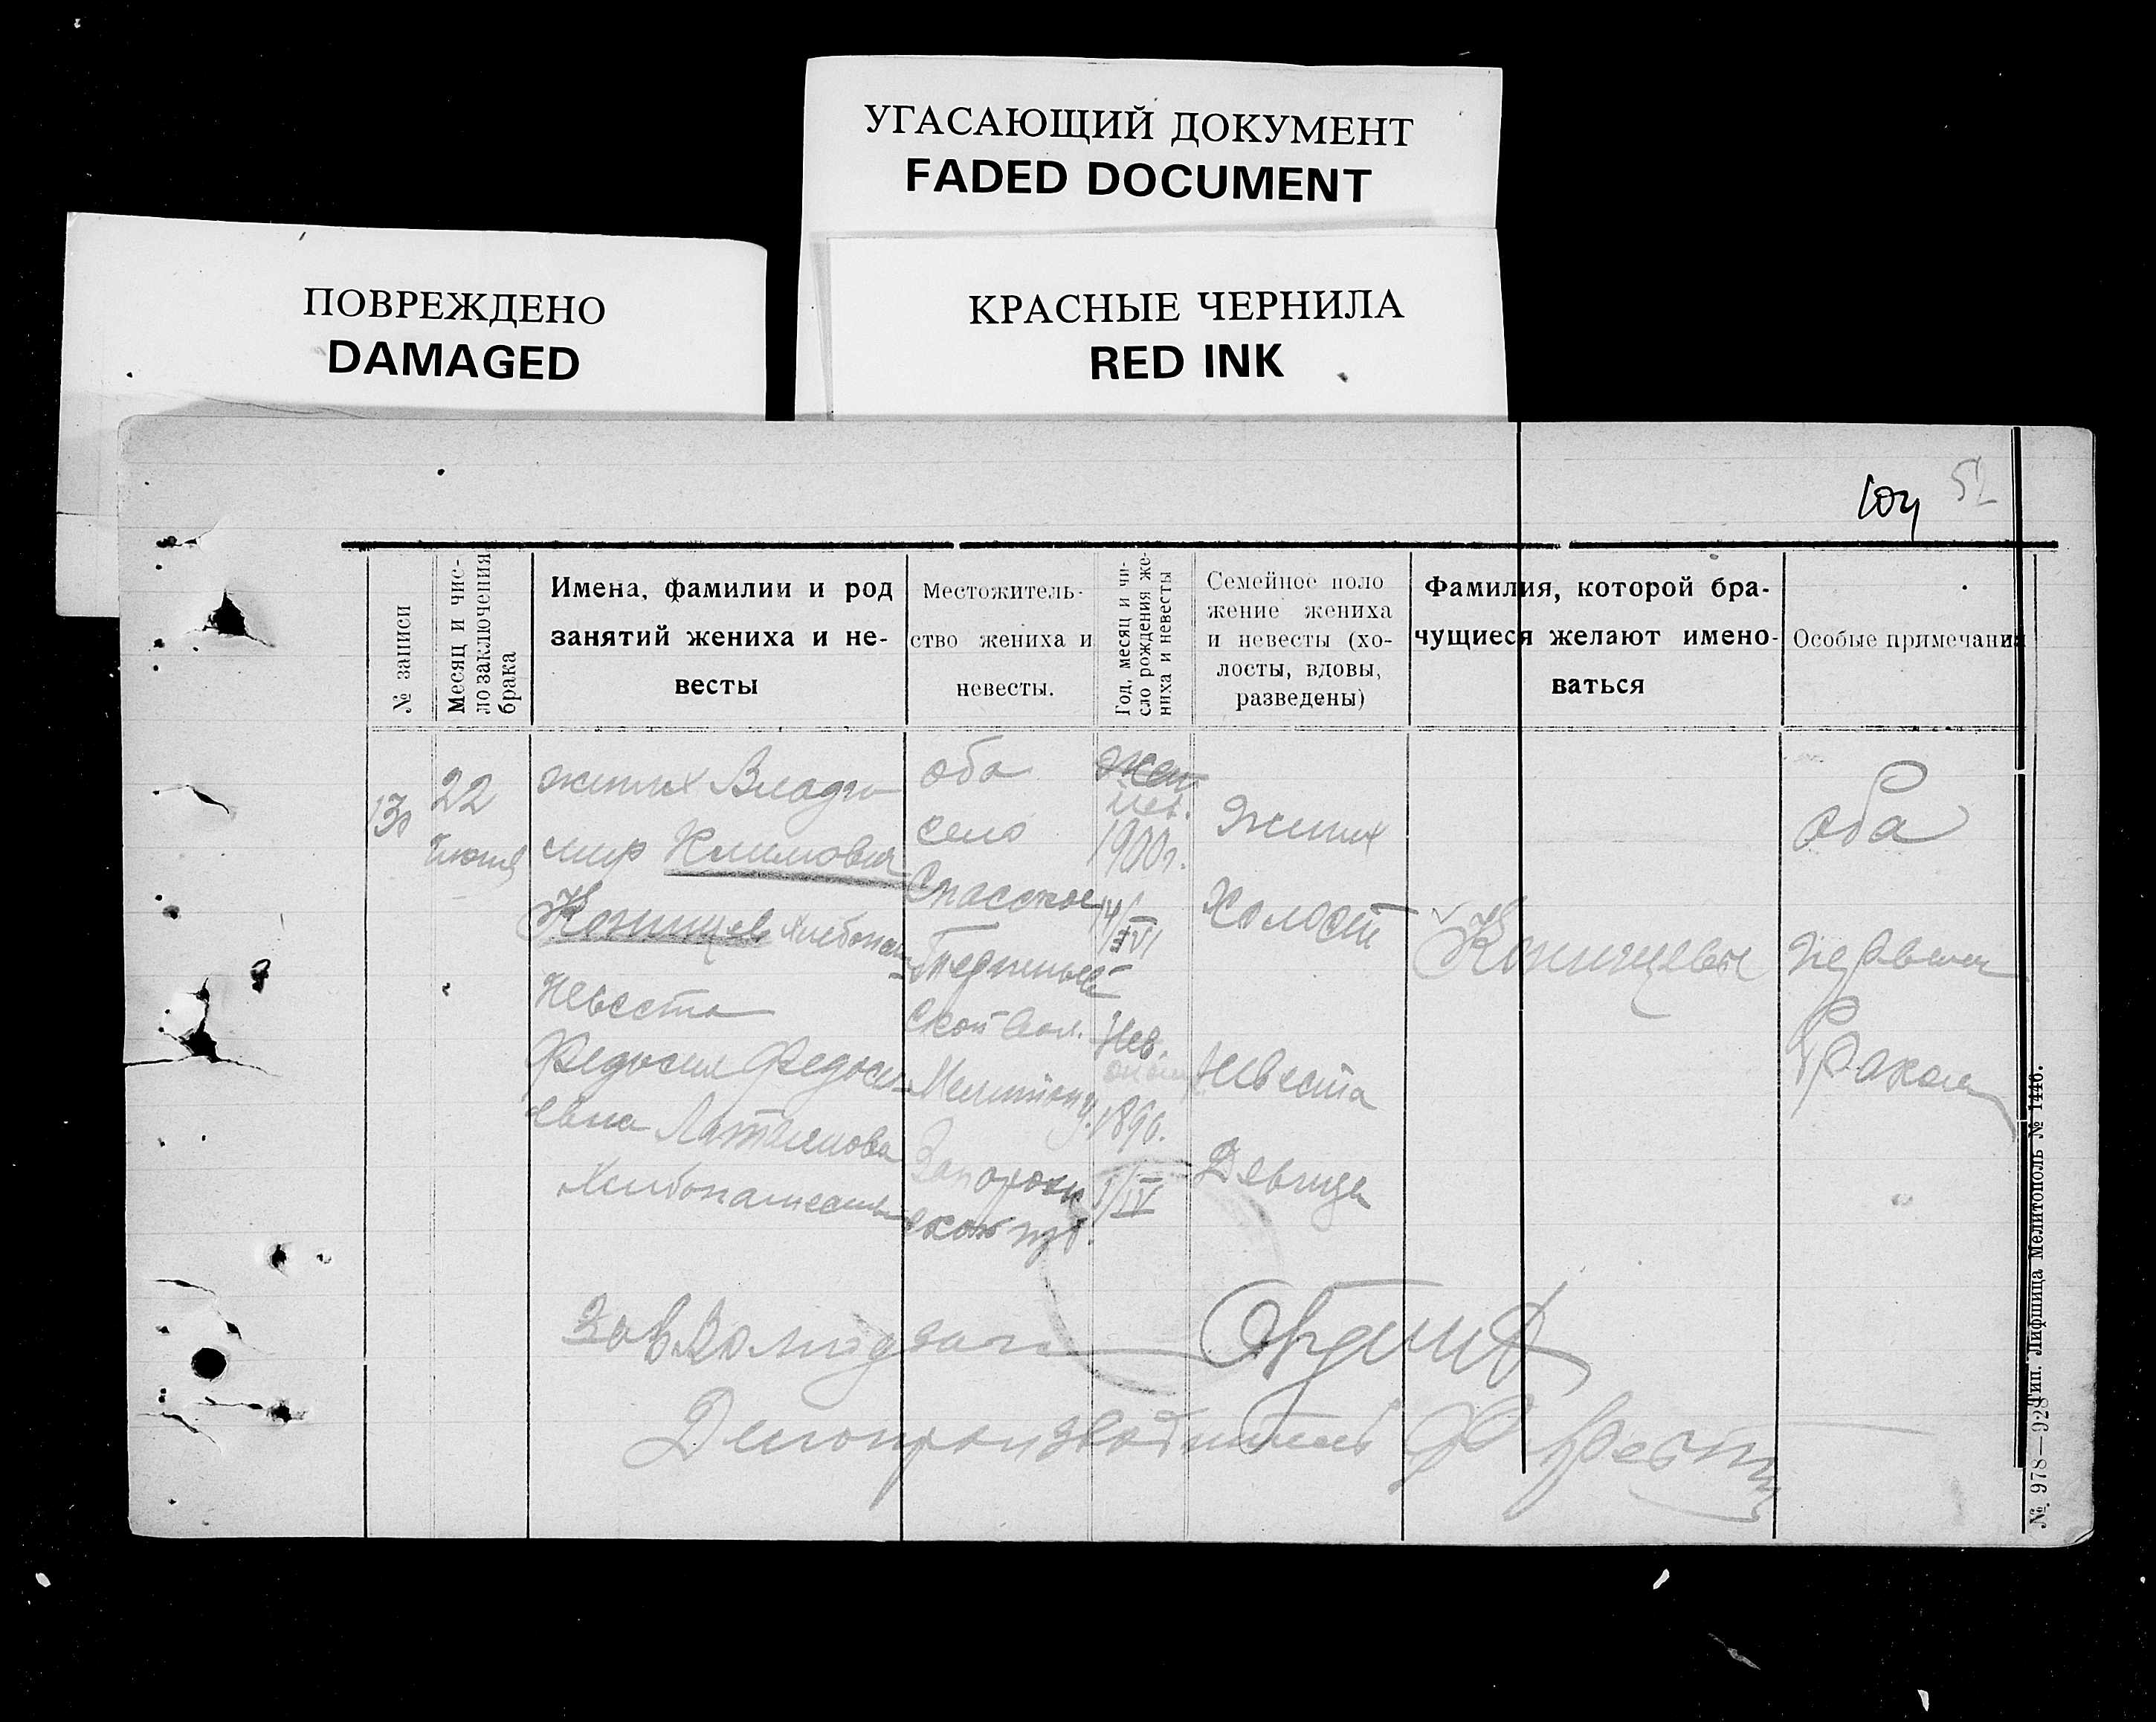 УГАСАЮЩИЙ ДОКУМЕНТ
FADED DOCUMENT
ПОВРЕЖДЕНО
DAMAGED
КРАСНЫЕ ЧЕРНИЛА
RED INK
104 52
№ записи
Месяц и чис-
ло заключения
брака
Имена, фамилии и род
занятий жениха и не-
весты
Местожитель-
ство жениха и
невесты.
Год, месяц и чи-
сло рождения же-
ниха и невесты
Семейное поло
жение жениха
и невесты (хо-
лосты, вдовы,
разведены)
Фамилия, которой бра-
чущиеся желают имено-
ваться
Особые примечания
130
22
июня
жених Влади
мир Климович
Конищев хлебопаш
невеста
Федосия Федосе
евна
хлебопашест
оба
село
Спасское
ской Вол.
Мелитоп у.
Запорож
ской губ.
жен
1900г.
14/VI
Нев.
1890.
1/IV
Жених
Холост
Невеста
Девица
Конищевы
оба
первым
браком
Зав Волподзаг
Делопроизводитель
№ 978—928 Тип. Лифшица Мелитополь № 1446.